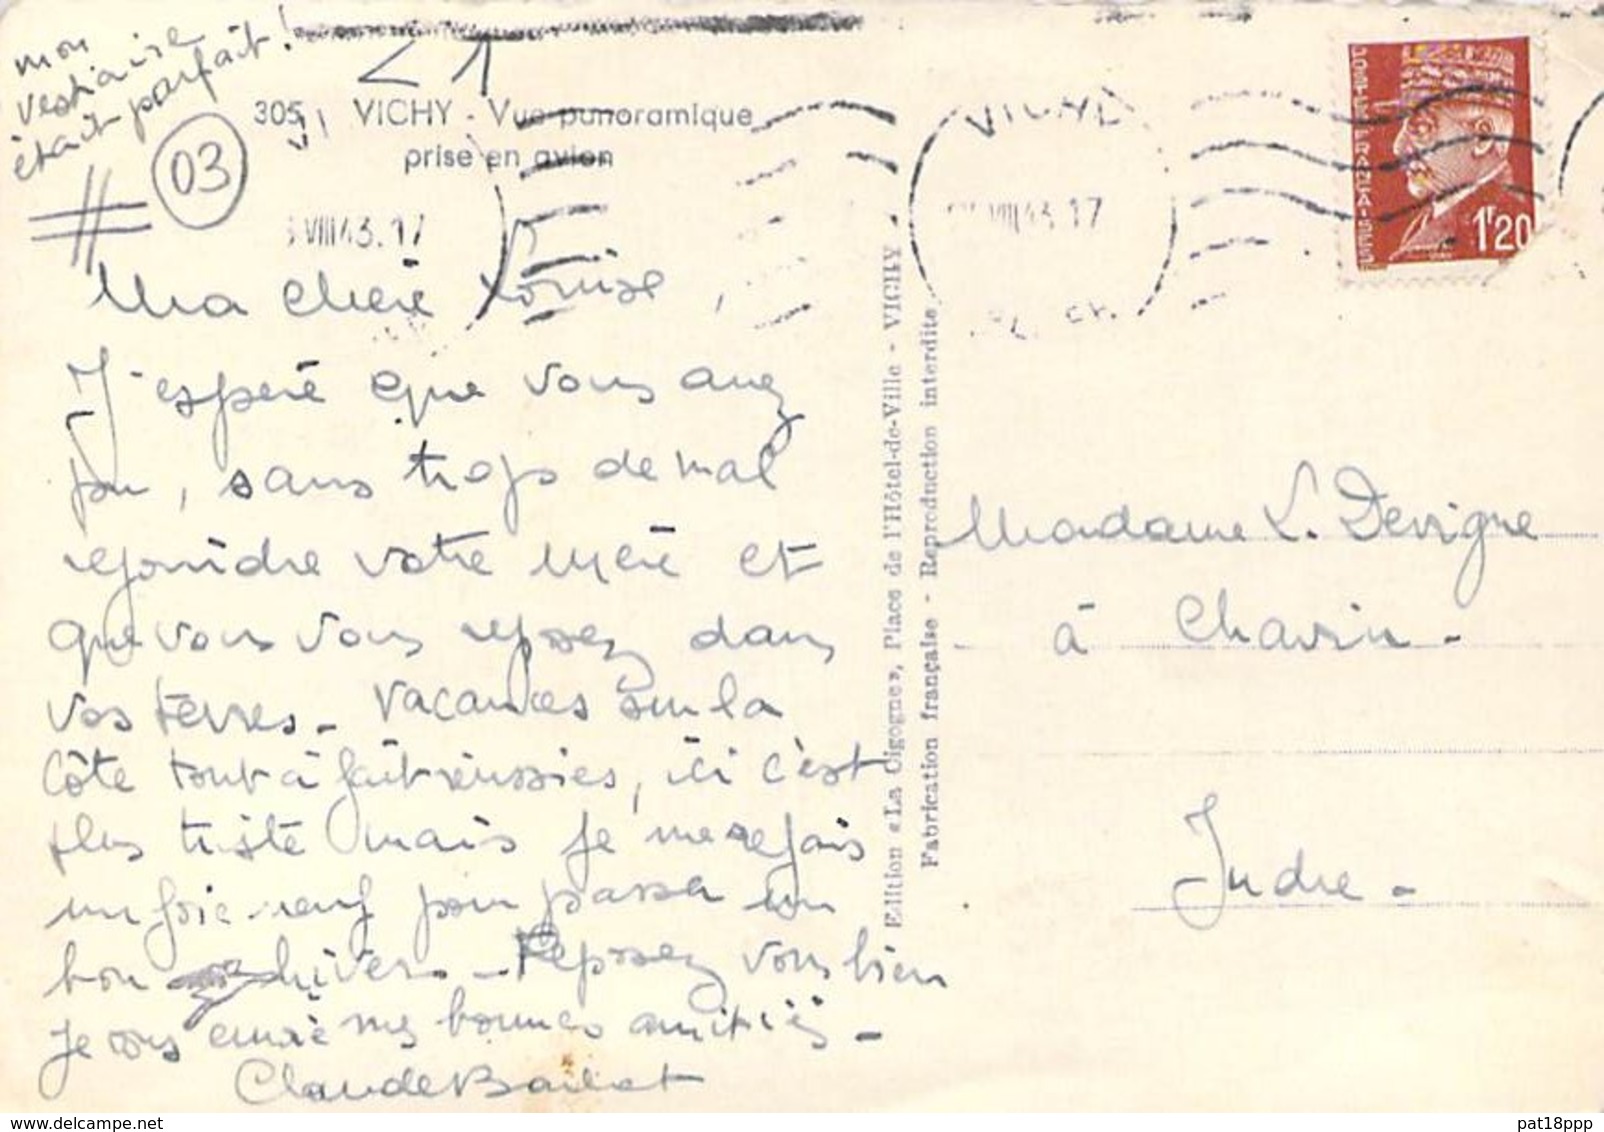 mon
vestiaire
était parfait !
03
305 VICHY - Vue panoramique
prise en avion
VIII 43. 17
VICHY
VIII 43. 17
POSTES FRANÇAISES
1F20
Ma chère Louise,
J'espère que vous avez
pu, sans trop de mal
rejoindre votre mère et
que vous vous reposez dans
vos terres - Vacances sur la
Côte tout à fait réussies, ici c'est
plus triste mais je me refais
un foie neuf pour passer un
bon hiver. - Reposez vous bien
Je vous envoie mes bonnes amitiés -
Claude
Edition «La Cigogne», Place de l'Hôtel-de-Ville - VICHY
Fabrication française - Reproduction interdite
Madame L. Devigne
à Chavin -
Indre -
pat18ppp